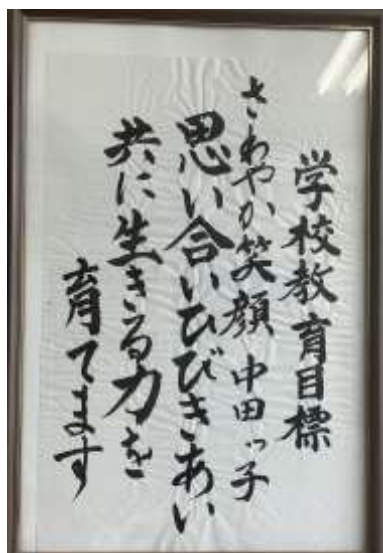 学校教育目標
さわやか笑顔 中田っ子
思い合いひびきあい
共に生きる力を
育てます